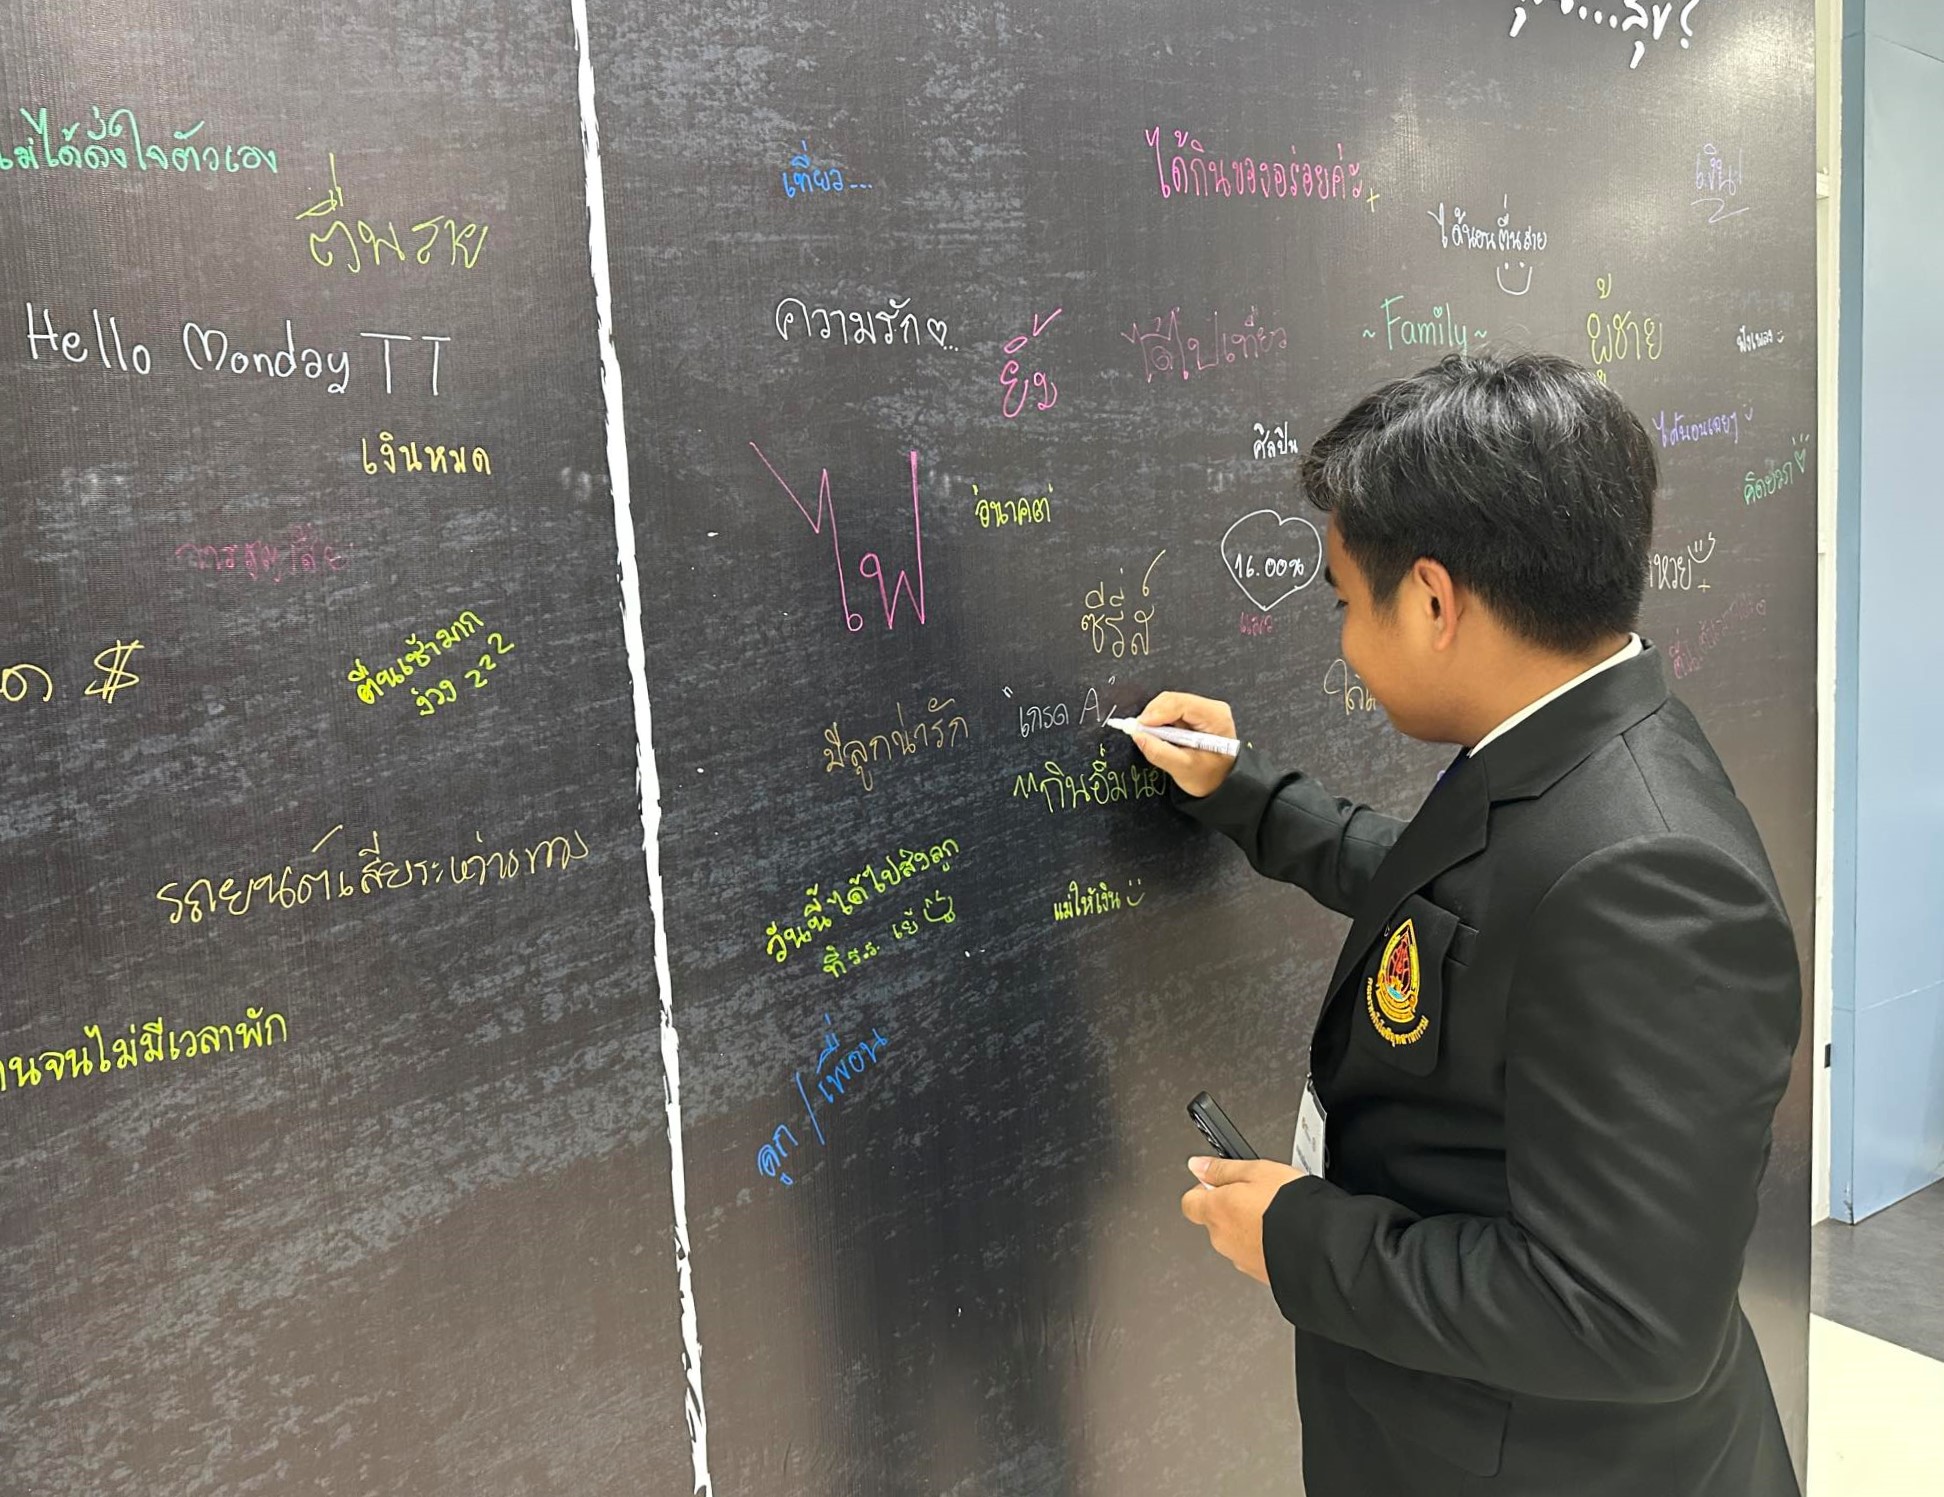 ...สุข?
ไม่ได้ดั่งใจตัวเอง
ตื่นสาย
Hello Monday TT
เงินหมด
การสูญเสีย
ด $
ตื่นเช้ามาก
ง่วง zzz
รถยนต์เสียระหว่างทาง
านจนไม่มีเวลาพัก
เที่ยว...
ได้กินของอร่อยค่ะ+
เงิน!
ได้นอนตื่นสาย
ความรัก♡...
ยิ้ม
ได้ไปเที่ยว
~Family~
ผู้ชาย
ฟังเพลง
ศิลปิน
ได้นอนเฉยๆ
คิดบวก♡
ไฟ
อนาคต
16.00น
แมว
ซีรี่ส์
หวย
มีลูกน่ารัก
"เกรด A"
"กินอิ่มนอ
วันนี้ได้ไปส่งลูก
ที่ ร.ร. เย้
แม่ให้เงิน
ลูก / เพื่อน